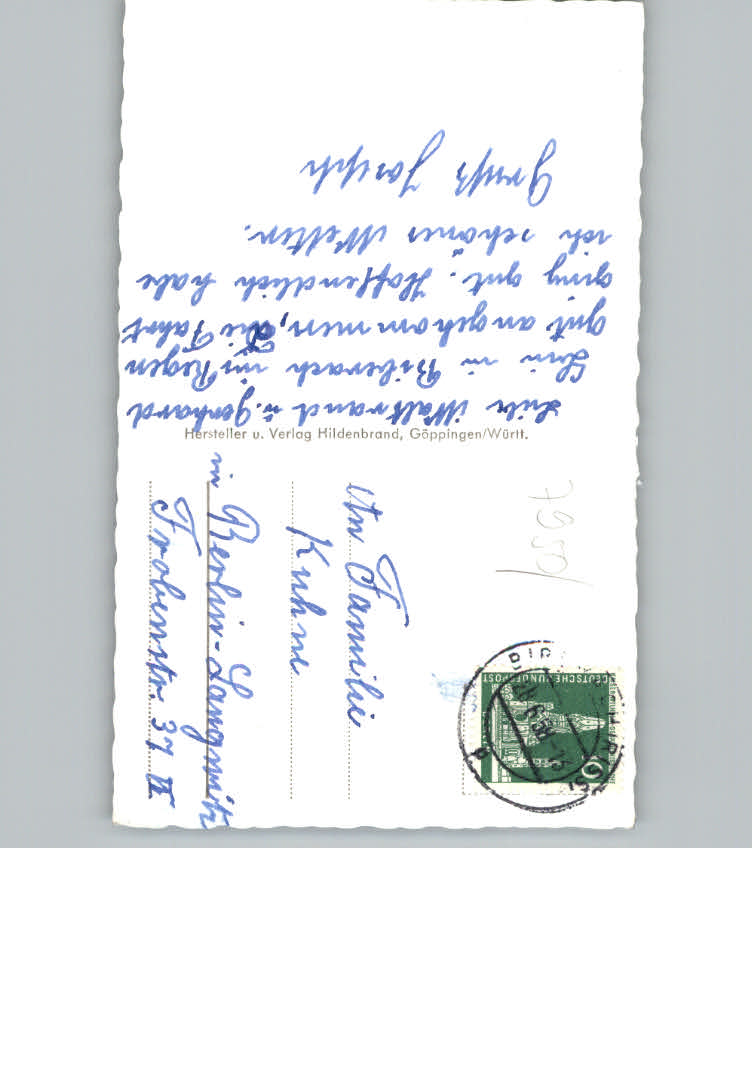 Liebe Waltraud u. Gerhard
Bin in Biberach im Regen
gut angekommen, die Fahrt
ging gut. Hoffendlich habe
ich schönes Wetter.
Gruß Joseph
Hersteller u. Verlag Hildenbrand, Göppingen/Württ.
7950
An Familie
Kuhn
in Berlin-Langwitz
Frobenstr 37 II
DEUTSCHE BUNDESPOST